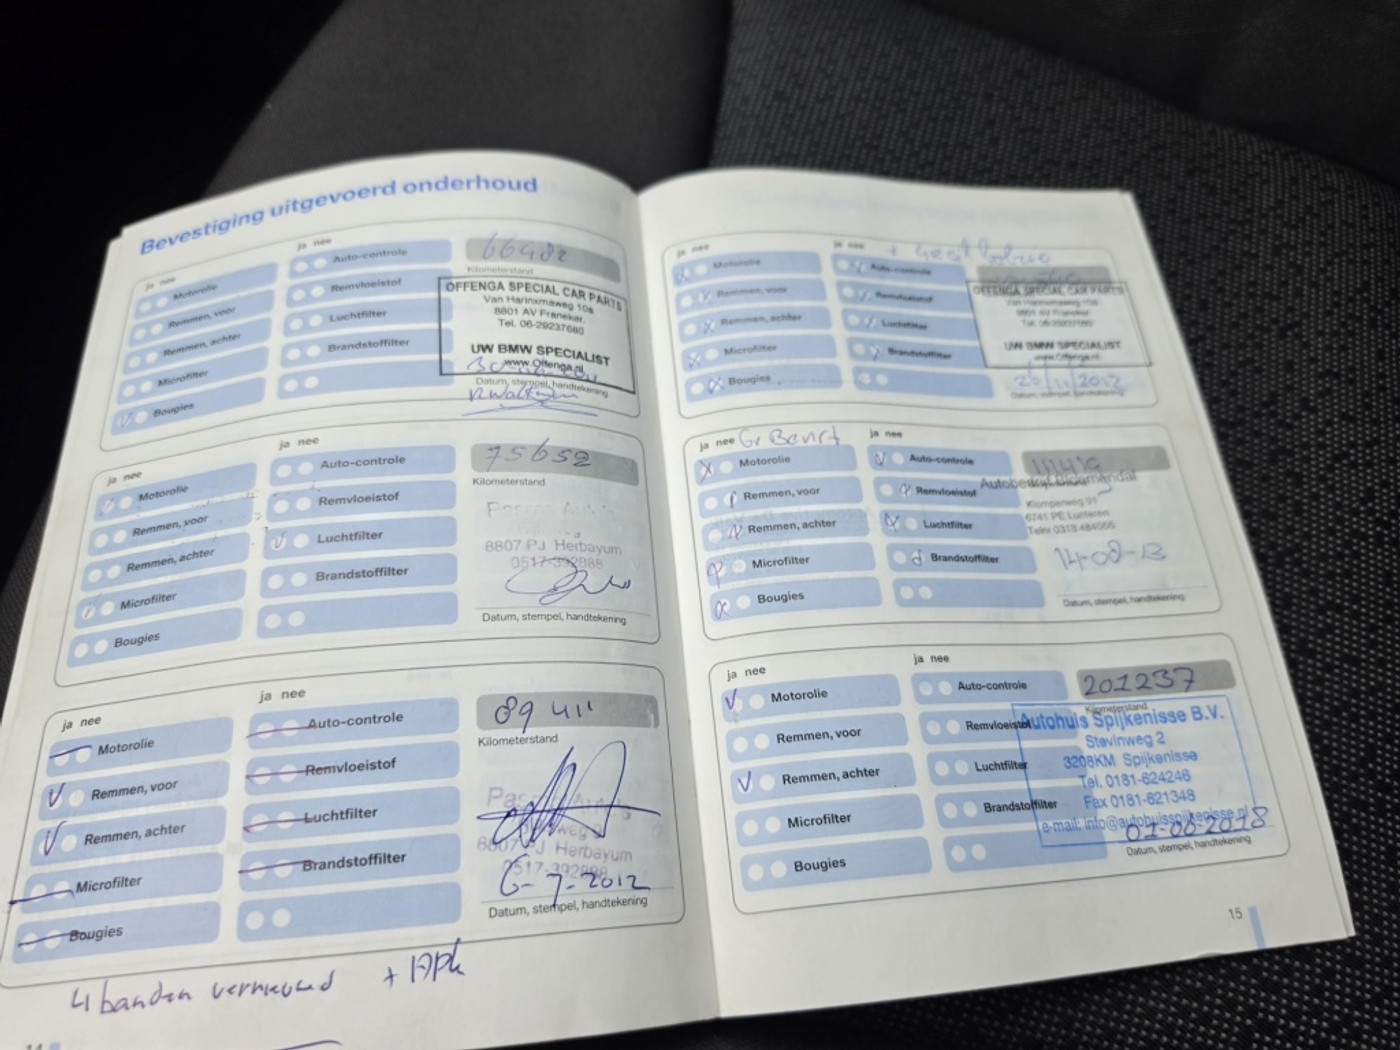 Bevestiging uitgevoerd onderhoud
ja nee
ja nee
Motorolie
Remmen, voor
Remmen, achter
Microfilter
Bougies
Auto-controle
Remvloeistof
Luchtfilter
Brandstoffilter
66482
Kilometerstand
OFFENGA SPECIAL CAR PARTS
Van Harinxmaweg 10a
8801 AV Franeker.
Tel. 06-29237680
UW BMW SPECIALIST
www.Offenga.nl
Datum, stempel, handtekening
ja nee
ja nee
Motorolie
Remmen, voor
Remmen, achter
Microfilter
Bougies
Auto-controle
Remvloeistof
Luchtfilter
Brandstoffilter
75652
Kilometerstand
8807 PJ Herbayum
0517-392888
Datum, stempel, handtekening
ja nee
ja nee
Motorolie
Remmen, voor
Remmen, achter
Microfilter
Bougies
Auto-controle
Remvloeistof
Luchtfilter
Brandstoffilter
89411
Kilometerstand
8807 PJ Herbayum
0517-392888
6-7-2012
Datum, stempel, handtekening
4 banden vernieuwd + APK
14
ja nee
ja nee
Motorolie
Remmen, voor
Remmen, achter
Microfilter
Bougies
Auto-controle
Remvloeistof
Luchtfilter
Brandstoffilter
OFFENGA SPECIAL CAR PARTS
Van Harinxmaweg 10a
8801 AV Franeker.
Tel. 06-29237680
UW BMW SPECIALIST
www.Offenga.nl
26/11/2012
Datum, stempel, handtekening
ja nee Gr Beurt
ja nee
Motorolie
Remmen, voor
Remmen, achter
Microfilter
Bougies
Auto-controle
Remvloeistof
Luchtfilter
Brandstoffilter
Autobedrijf Bloemendal
Klomperweg 91
6741 PE Lunteren
14-08-13
Datum, stempel, handtekening
ja nee
ja nee
Motorolie
Remmen, voor
Remmen, achter
Microfilter
Bougies
Auto-controle
Remvloeistof
Luchtfilter
Brandstoffilter
201237
Kilometerstand
Autohuis Spijkenisse B.V.
Stevinweg 2
3208KM Spijkenisse
Tel. 0181-624246
Fax 0181-621348
e-mail: info@autohuisspijkenisse.nl
01-06-2018
Datum, stempel, handtekening
15